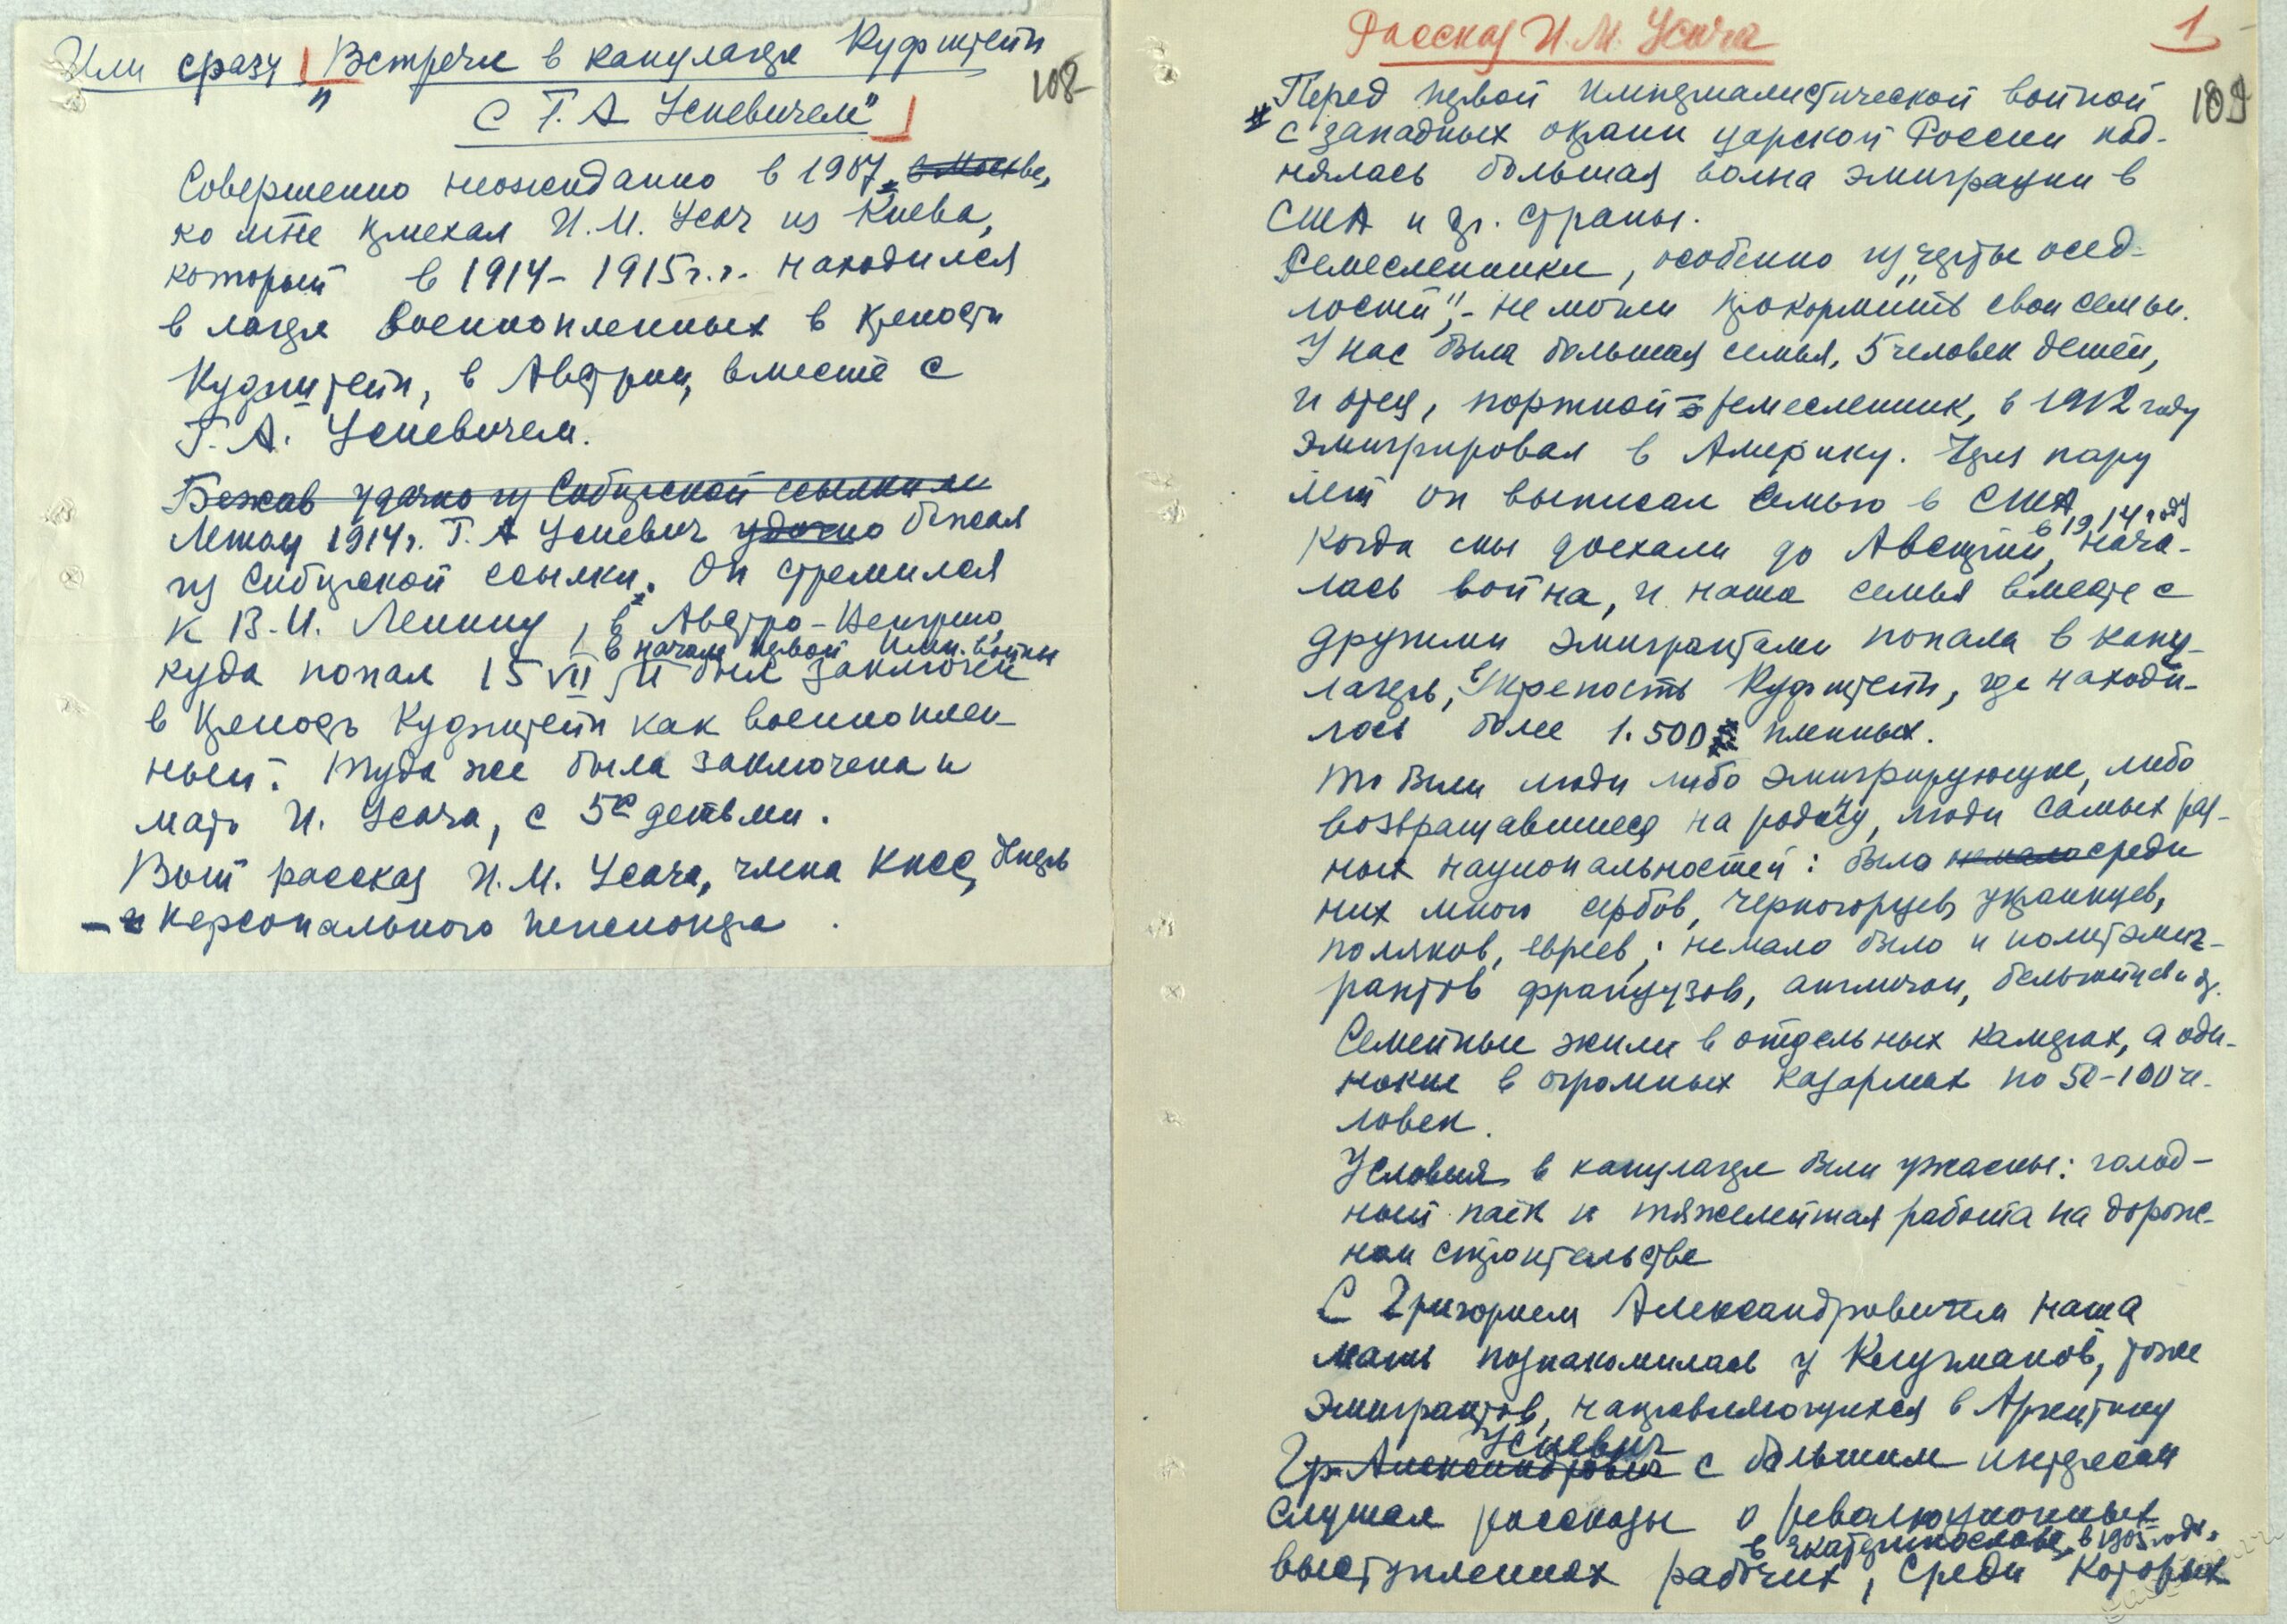 Или сразу „Встречи в концлагере Куфштейн
108
с Г. А Усиевичем"
Совершенно неожиданно в 1967, в Москве,
ко мне приехал И. М. Усач из Киева,
который в 1914-1915 г.г. находился
в лагере военнопленных в крепости
Куфштейн, в Австрии, вместе с
Г. А. Усиевичем.
Бежав удачно из Сибирской ссылки
Летом 1914 г. Г. А Усиевич удачно бежал
из Сибирской ссылки. Он стремился
к В. И. Ленину, в Австро-Венгрию,
в начале первой имп. войны
куда попал 15 VII и был заключен
в крепость Куфштейн как военноплен-
ный. Туда же была заключена и
мать И. Усача, с 5ю детьми.
Вот рассказ И. М. Усача, члена КПСС, ныне
- и персонального пенсионера.
Рассказ И. М. Усача
1
109
Перед первой империалистической войной
с западных окраин царской России под-
нялась большая волна эмиграции в
США и др. страны.
Ремесленники, особенно из „черты осед-
лости", - не могли прокормить свои семьи.
У нас была большая семья, 5 человек детей,
и отец, портной-ремесленник, в 1912 году
эмигрировал в Америку. Через пару
лет он выписал семью в США
в 1914 году
Когда мы доехали до Австрии, нача-
лась война, и наша семья вместе с
другими эмигрантами попала в конц-
лагерь, крепость Куфштейн, где находи-
лось более 1.500 пленных.
То были люди либо эмигрирующие, либо
возвращавшиеся на родину, люди самых раз-
ных национальностей: было немало среди
них много сербов, черногорцев, украинцев,
поляков, евреев; немало было и политэмиг-
рантов французов, англичан, бельгийцев и др.
Семейные жили в отдельных камерах, а оди-
нокие в огромных казармах по 50-100 че-
ловек.
Условия в концлагере были ужасны: голод-
ный паёк и тяжелейшая работа на дорож-
ном строительстве
С Григорием Александровичем наша
мать познакомилась у Клугманов, тоже
эмигрантов, направляющихся в Аргентину
Усиевич
Гр. Александрович с большим интересом
слушал рассказы о революционных
в Екатеринославе, в 1905 году,
выступлениях рабочих, среди которых